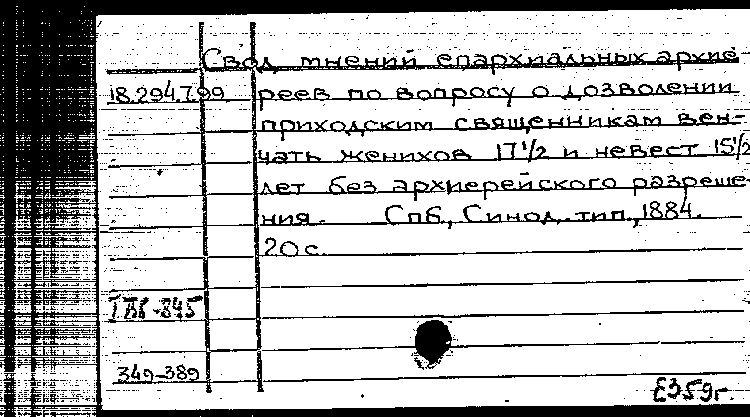 Свод мнений епархиальных архие-
18.294.7.99. реев по вопросу о дозволении
приходским священникам вен-
чать женихов 17 1/2 и невест 15 1/2
лет без архиерейского разреше-
ния. Спб., Синод. тип., 1884.
20 с.
-845
349-389
Е359г.